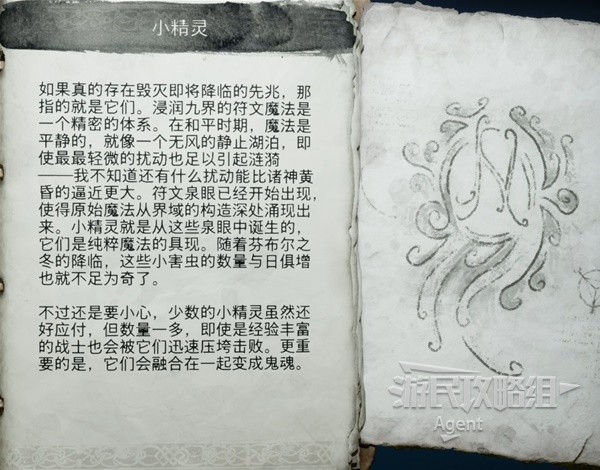 小精灵
如果真的存在毁灭即将降临的先兆，那
指的就是它们。浸润九界的符文魔法是
一个精密的体系。在和平时期，魔法是
平静的，就像一个无风的静止湖泊，即
使最最轻微的扰动也足以引起涟漪
——我不知道还有什么扰动能比诸神黄
昏的逼近更大。符文泉眼已经开始出现，
使得原始魔法从界域的构造深处涌现出
来。小精灵就是从这些泉眼中诞生的，
它们是纯粹魔法的具现。随着芬布尔之
冬的降临，这些小害虫的数量与日俱增
也就不足为奇了。
不过还是要小心，少数的小精灵虽然还
好应付，但数量一多，即使是经验丰富
的战士也会被它们迅速压垮击败。更重
要的是，它们会融合在一起变成鬼魂。
游民攻略组
Agent